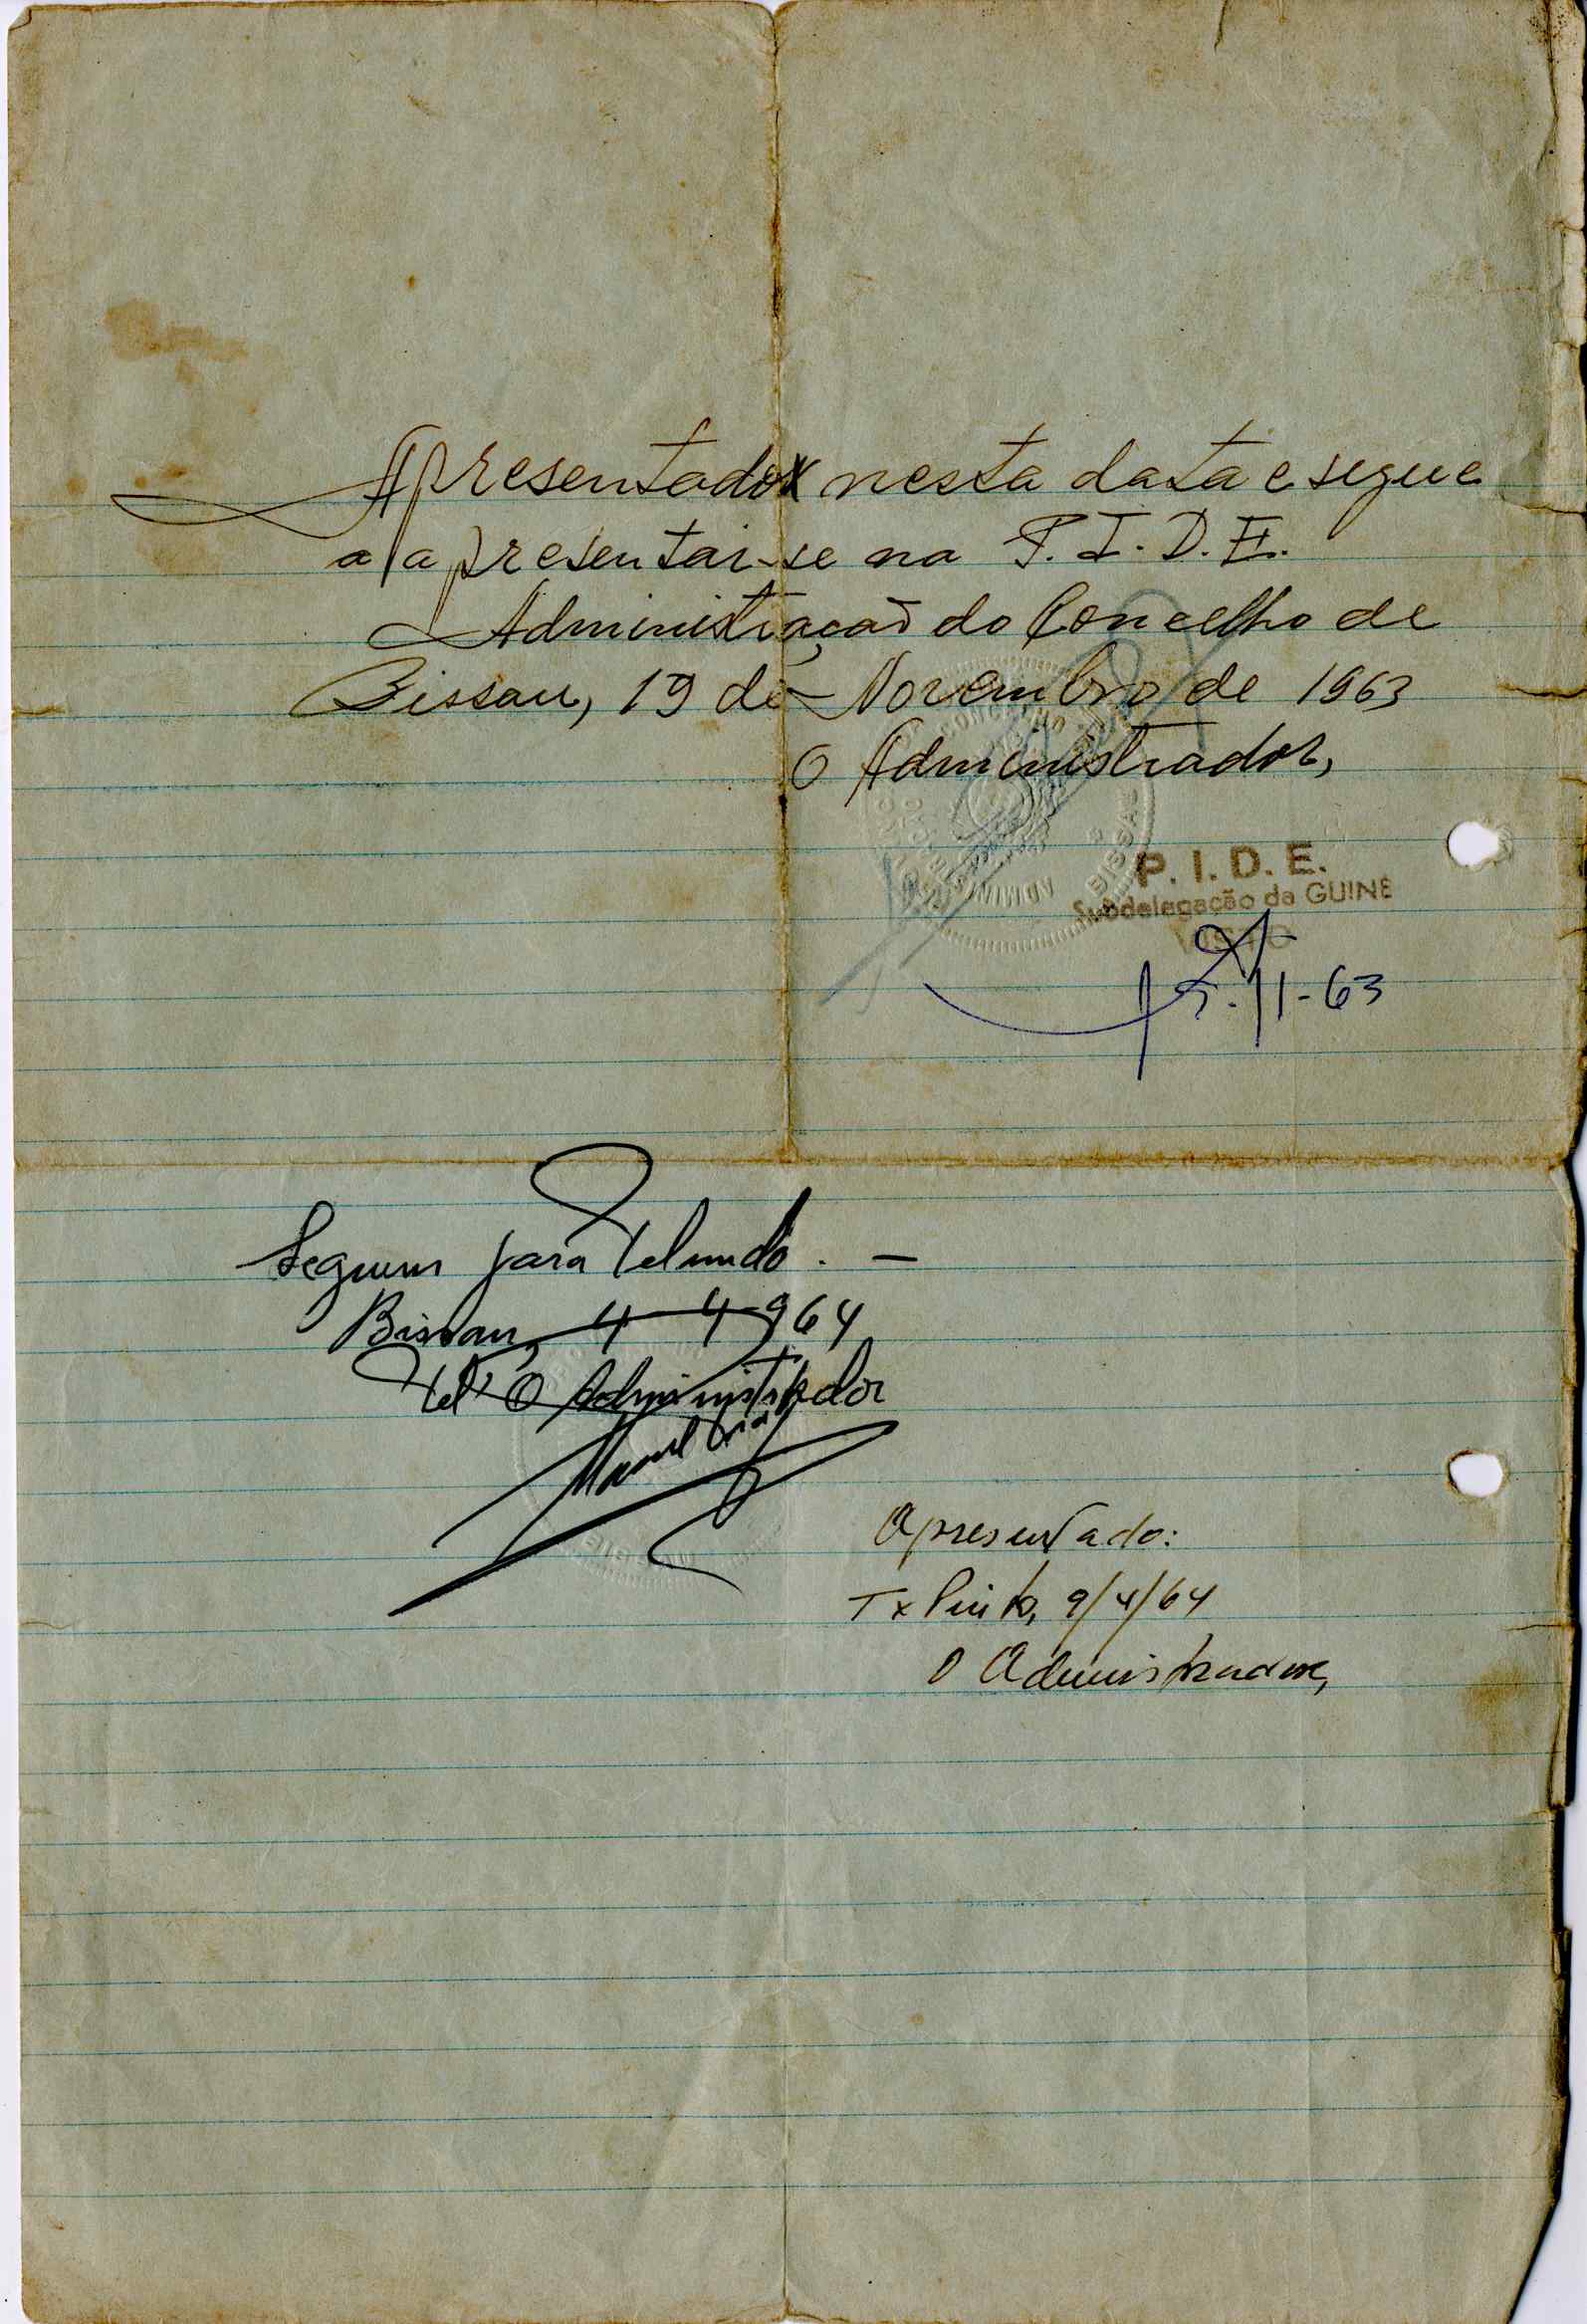 Apresentado nesta data e segue
a apresentar-se na P.I.D.E.
Administração do Concelho de
Bissau, 19 de Novembro de 1963
O Administrador,
P. I. D. E.
Subdelegação da GUINÉ
11-63
Seguem para Pelundo. —
Bissau, 4-4-964
Pel' O Administrador
Manuel
Apresentado:
Tx Pinto, 9/4/64
O Administrador,